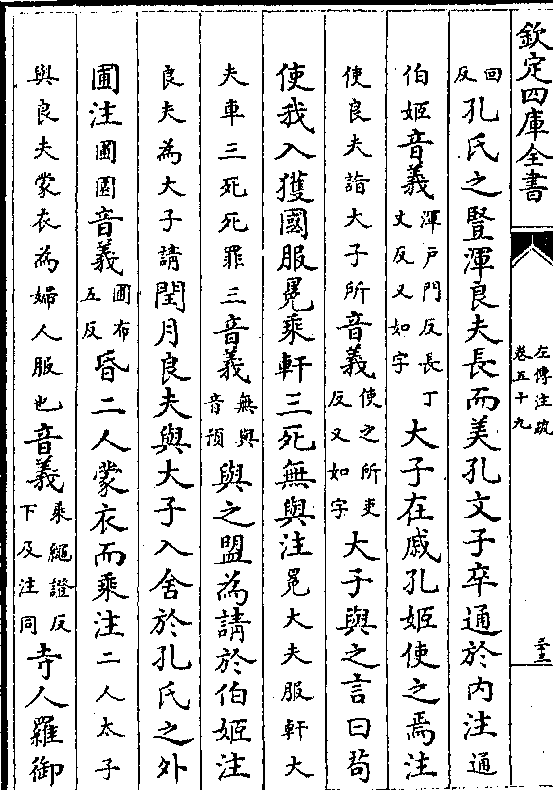 欽定四庫全書
左傳注疏
卷五十九
三十三
回反孔氏之豎渾良夫長而美孔文子卒通於内注通
伯姬音義渾户門反長丁丈反又如字大子在戚孔姬使之焉注
使良夫詣大子所音義使之所吏反又如字大子與之言曰茍
使我入獲國服冕乘軒三死無與注冕大夫服軒大
夫車三死死罪三音義無與音預與之盟為請於伯姬注
良夫為大子請閏月良夫與大子入舍於孔氏之外
圃注圃園音義圃布五反昏二人蒙衣而乘注二人太子
與良夫蒙衣為婦人服也音義乘繩證反下及注同寺人羅御